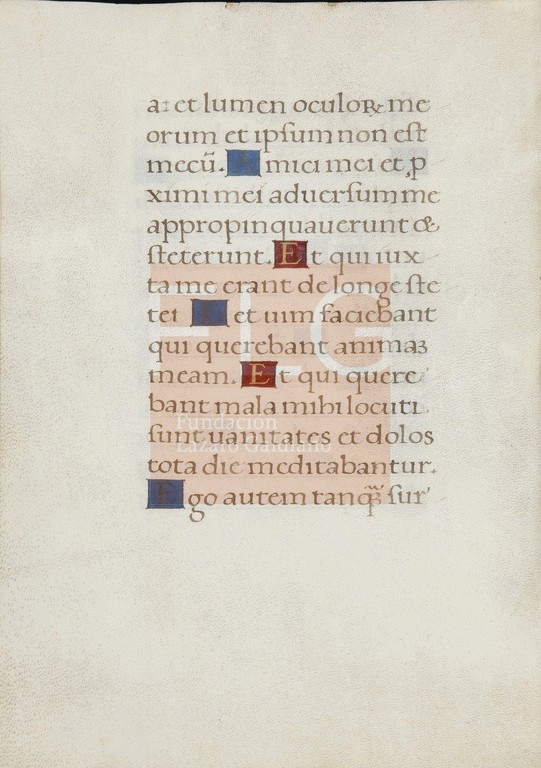 a: et lumen oculoꝝ me
orum et ipſum non eſt
mecũ. A mici mei et ꝓ
ximi mei aduerſum me
appropinquauerunt &
ſteterunt. E t qui iux
ta me erant de longe ſte
te
et uim faciebant
qui querebant animaꝫ
meam. E t qui quere
bant mala mihi locuti
ſunt uanitates et dolos
tota die meditabantur.
E go autem tanqꝫ̃ ſur
FLG
Fundación
Lázaro Galdiano